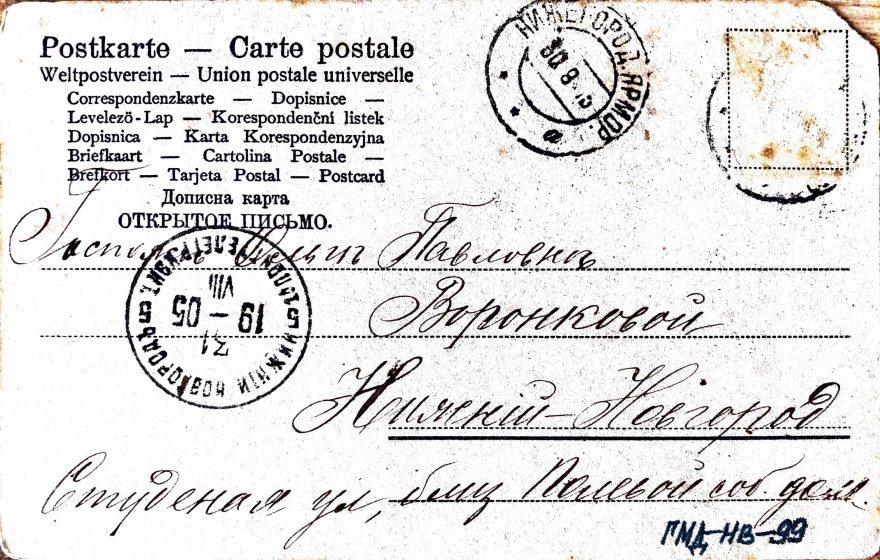 Postkarte — Carte postale
Weltpostverein — Union postale universelle
Correspondenzkarte — Dopisnice —
Levelezö-Lap — Korespondenční listek
Dopisnica — Karta Korespondenzyjna
Briefkaart — Cartolina Postale —
Brefkort — Tarjeta Postal — Postcard
Дописна карта
ОТКРЫТОЕ ПИСЬМО.
НИЖЕГОРОД. ЯРМОР.
Ольги Павловны
Воронковой
НИЖНІЙ НОВГОРОДЪ
5 5
31
19 — 05
VIII
Нижній-Новгород
Студеная ул, близ Полевой соб. дом.
ГМД-НВ-99